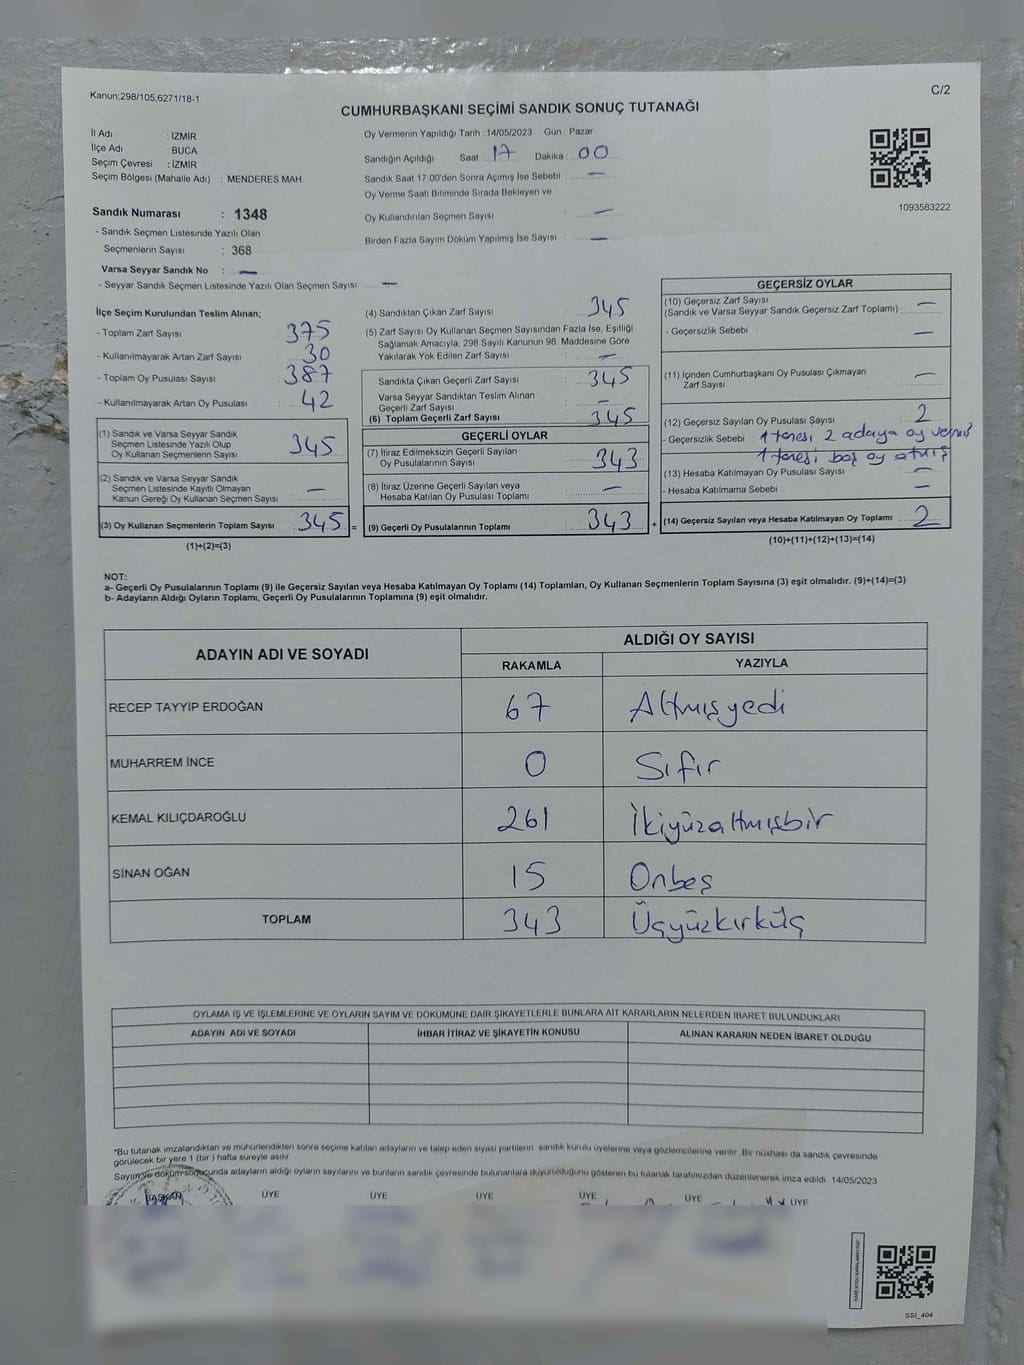 Kanun;298/105,6271/18-1
C/2
CUMHURBAŞKANI SEÇİMİ SANDIK SONUÇ TUTANAĞI
İl Adı : İZMİR
İlçe Adı : BUCA
Seçim Çevresi : İZMİR
Seçim Bölgesi (Mahalle Adı) : MENDERES MAH.
Oy Vermenin Yapıldığı Tarih : 14/05/2023 Gün : Pazar
Sandığın Açıldığı Saat : 17 Dakika : 00
Sandık Saat 17.00'den Sonra Açımış İse Sebebi : —
Oy Verme Saati Bitiminde Sırada Bekleyen ve
Oy Kullandırılan Seçmen Sayısı : —
Birden Fazla Sayım Döküm Yapılmış İse Sayısı : —
1093583222
Sandık Numarası : 1348
- Sandık Seçmen Listesinde Yazılı Olan
Seçmenlerin Sayısı : 368
Varsa Seyyar Sandık No : —
- Seyyar Sandık Seçmen Listesinde Yazılı Olan Seçmen Sayısı: —
İlçe Seçim Kurulundan Teslim Alınan;
- Toplam Zarf Sayısı : 375
- Kullanılmayarak Artan Zarf Sayısı : 30
- Toplam Oy Pusulası Sayısı : 387
- Kullanılmayarak Artan Oy Pusulası : 42
(1) Sandık ve Varsa Seyyar Sandık
Seçmen Listesinde Yazılı Olup
Oy Kullanan Seçmenlerin Sayısı : 345
(2) Sandık ve Varsa Seyyar Sandık
Seçmen Listesinde Kayıtlı Olmayan
Kanun Gereği Oy Kullanan Seçmen Sayısı : —
(3) Oy Kullanan Seçmenlerin Toplam Sayısı : 345 =
(1)+(2)=(3)
(4) Sandıktan Çıkan Zarf Sayısı : 345
(5) Zarf Sayısı Oy Kullanan Seçmen Sayısından Fazla İse, Eşitliği
Sağlamak Amacıyla, 298 Sayılı Kanunun 98. Maddesine Göre
Yakılarak Yok Edilen Zarf Sayısı : —
Sandıkta Çıkan Geçerli Zarf Sayısı : 345
Varsa Seyyar Sandıktan Teslim Alınan
Geçerli Zarf Sayısı : —
(6) Toplam Geçerli Zarf Sayısı : 345
GEÇERLİ OYLAR
(7) İtiraz Edilmeksizin Geçerli Sayılan
Oy Pusulalarının Sayısı : 343
(8) İtiraz Üzerine Geçerli Sayılan veya
Hesaba Katılan Oy Pusulası Toplamı : —
(9) Geçerli Oy Pusulalarının Toplamı : 343 +
GEÇERSİZ OYLAR
(10) Geçersiz Zarf Sayısı
(Sandık ve Varsa Seyyar Sandık Geçersiz Zarf Toplamı) : —
- Geçersizlik Sebebi : —
(11) İçinden Cumhurbaşkanı Oy Pusulası Çıkmayan
Zarf Sayısı : —
(12) Geçersiz Sayılan Oy Pusulası Sayısı : 2
- Geçersizlik Sebebi : 1 tanesi 2 adaya oy vermiş
1 tanesi boş oy atmış
(13) Hesaba Katılmayan Oy Pusulası Sayısı : —
- Hesaba Katılmama Sebebi : —
(14) Geçersiz Sayılan veya Hesaba Katılmayan Oy Toplamı : 2
(10)+(11)+(12)+(13)=(14)
NOT:
a- Geçerli Oy Pusulalarının Toplamı (9) ile Geçersiz Sayılan veya Hesaba Katılmayan Oy Toplamı (14) Toplamları, Oy Kullanan Seçmenlerin Toplam Sayısına (3) eşit olmalıdır. (9)+(14)=(3)
b- Adayların Aldığı Oyların Toplamı, Geçerli Oy Pusulalarının Toplamına (9) eşit olmalıdır.
ADAYIN ADI VE SOYADI ALDIĞI OY SAYISI
RAKAMLA YAZIYLA
RECEP TAYYİP ERDOĞAN 67 Altmışyedi
MUHARREM İNCE 0 Sıfır
KEMAL KILIÇDAROĞLU 261 İkiyüzaltmışbir
SİNAN OĞAN 15 Onbeş
TOPLAM 343 Üçyüzkırküç
OYLAMA İŞ VE İŞLEMLERİNE VE OYLARIN SAYIM VE DÖKÜMÜNE DAİR ŞİKAYETLERLE BUNLARA AİT KARARLARIN NELERDEN İBARET BULUNDUKLARI
ADAYIN ADI VE SOYADI İHBAR İTİRAZ VE ŞİKAYETİN KONUSU ALINAN KARARIN NEDEN İBARET OLDUĞU
*Bu tutanak imzalandıktan ve mühürlendikten sonra seçime katılan adayların ve talep eden siyasi partilerin sandık kurulu üyelerine veya gözlemcilerine verilir. Bir nüshası da sandık çevresinde
görülecek bir yere 1 (bir ) hafta süreyle asılır.
Sayım ve döküm sonucunda adayların aldığı oyların sayılarını ve bunların sandık çevresinde bulunanlara duyurulduğunu gösteren bu tutanak tarafımızdan düzenlenerek imza edildi. 14/05/2023
BAŞKAN ÜYE ÜYE ÜYE ÜYE ÜYE ÜYE
SSI_404